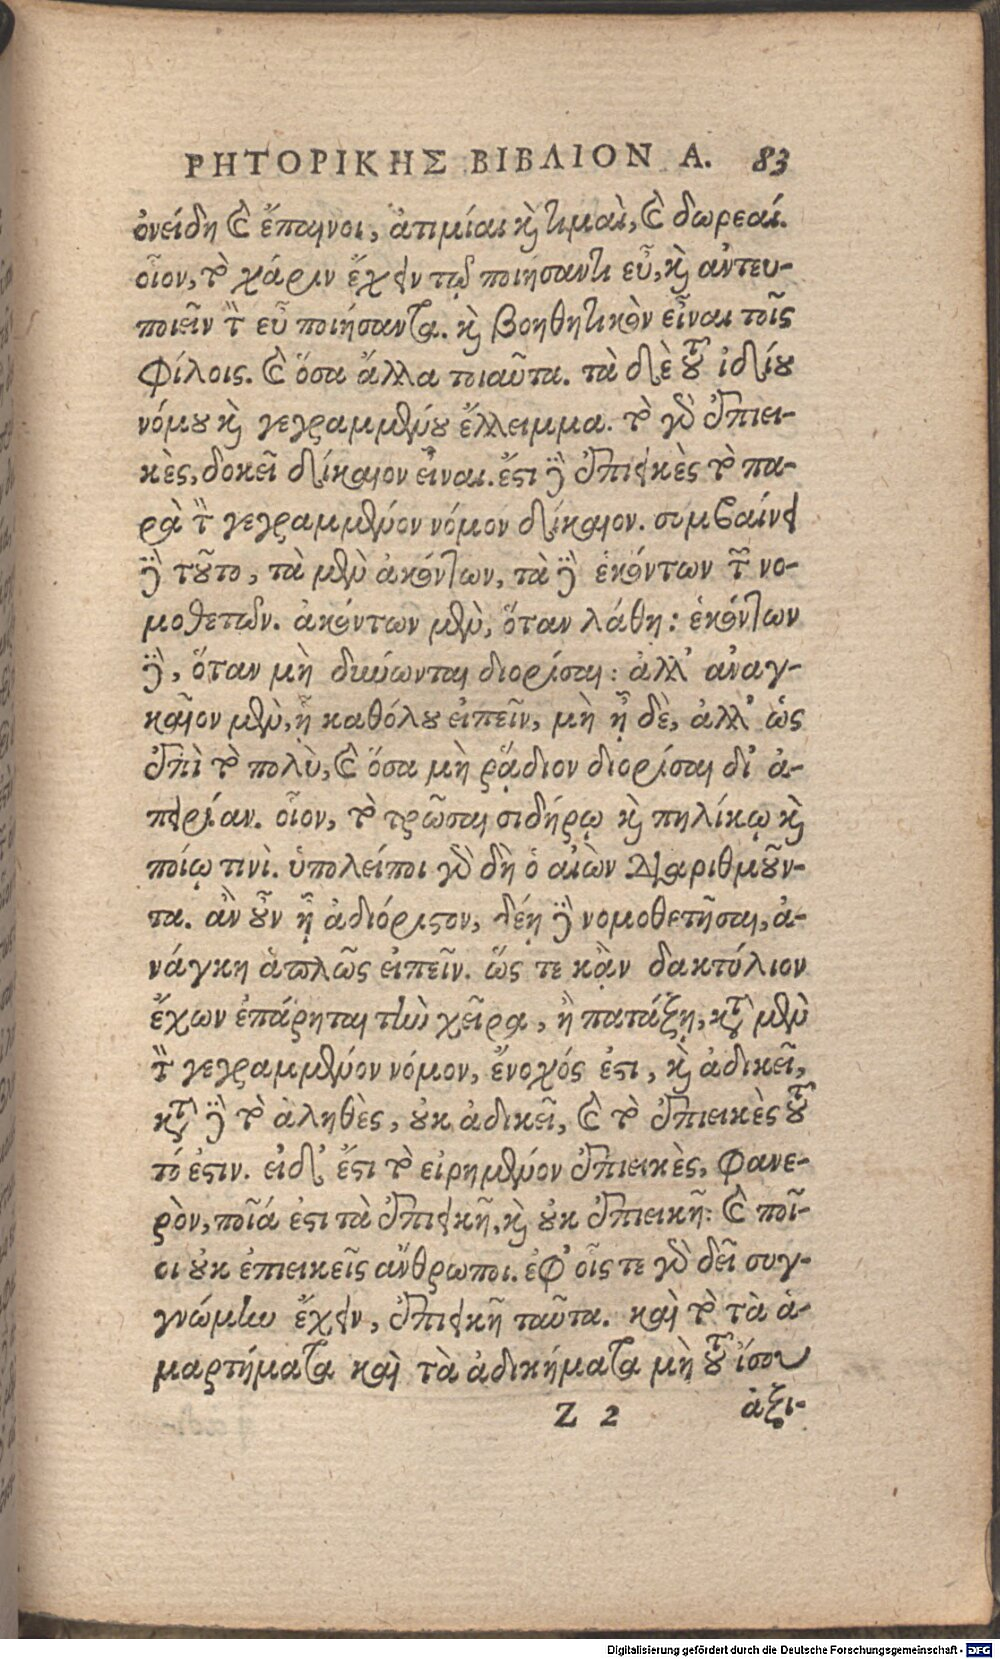 ΡΗΤΟΡΙΚΗΣ ΒΙΒΛΙΟΝ Α. 83
ὀνείδη καὶ ἔπαινοι, ἀτιμίαι καὶ τιμαὶ, καὶ δωρεαί.
οἷον, τὸ χάριν ἔχειν τῷ ποιήσαντι εὖ, καὶ ἀντευ-
ποιεῖν τὸν εὖ ποιήσαντα. καὶ βοηθητικὸν εἶναι τοῖς
φίλοις. καὶ ὅσα ἄλλα τοιαῦτα. τὰ δὲ τοῦ ἰδίου
νόμου καὶ γεγραμμένου ἔλλειμμα. τὸ γὰρ ἐπιει-
κὲς, δοκεῖ δίκαιον εἶναι. ἔστι δὲ ἐπιεικὲς τὸ πα-
ρὰ τὸν γεγραμμένον νόμον δίκαιον. συμβαίνει
δὲ τοῦτο, τὰ μὲν ἀκόντων, τὰ δὲ ἑκόντων τῶν νο-
μοθετῶν. ἀκόντων μὲν, ὅταν λάθῃ: ἑκόντων
δὲ, ὅταν μὴ δύνωνται διορίσαι: ἀλλ' ἀναγ-
καῖον μὲν, ᾖ καθόλου εἰπεῖν, μὴ ᾖ δὲ, ἀλλ' ὡς
ἐπὶ τὸ πολὺ, καὶ ὅσα μὴ ῥᾴδιον διορίσαι δι' ἀ-
πειρίαν. οἷον, τὸ τρῶσαι σιδήρῳ καὶ πηλίκῳ καὶ
ποίῳ τινὶ. ὑπολείποι γὰρ δὴ ὁ αἰὼν διαριθμοῦν-
τα. ἂν οὖν ᾖ ἀδιόριστον, δέῃ δὲ νομοθετῆσαι, ἀ-
νάγκη ἁπλῶς εἰπεῖν. ὥς τε κᾂν δακτύλιον
ἔχων ἐπάρηται τὴν χεῖρα, ἢ πατάξῃ, κατὰ μὲν
τὸν γεγραμμένον νόμον, ἔνοχός ἐστι, καὶ ἀδικεῖ,
κατὰ δὲ τὸ ἀληθὲς, οὐκ ἀδικεῖ, καὶ τὸ ἐπιεικὲς τοῦ
τό ἐστιν. εἰ δ' ἔστι τὸ εἰρημένον ἐπιεικὲς, φανε-
ρὸν, ποῖά ἐστι τὰ ἐπιεικῆ, καὶ οὐκ ἐπιεικῆ: καὶ ποῖ-
οι οὐκ ἐπιεικεῖς ἄνθρωποι. ἐφ' οἷς τε γὰρ δεῖ συγ-
γνώμην ἔχειν, ἐπιεικῆ ταῦτα. καὶ τὸ τὰ ἁ-
μαρτήματα καὶ τὰ ἀδικήματα μὴ τοῦ ἴσου
Ζ 2 ἀξι-
Digitalisierung gefördert durch die Deutsche Forschungsgemeinschaft - DFG